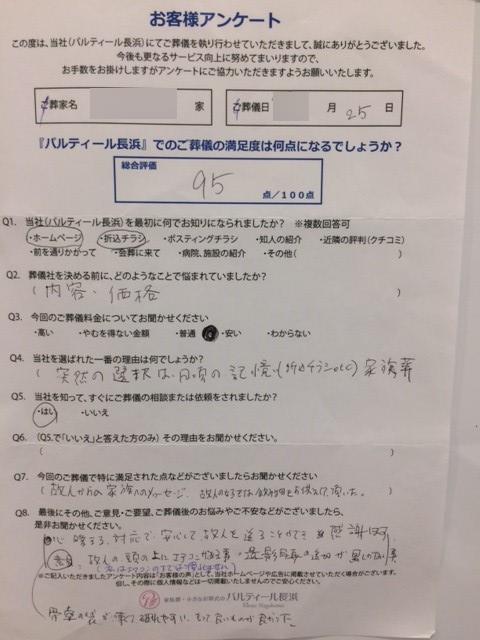 お客様アンケート
この度は、当社(バルティール長浜)にてご葬儀を執り行わせていただきまして、誠にありがとうございました。
今後も更なるサービス向上に努めてまいりますので、
お手数をお掛けしますがアンケートにご協力いただきますようお願いいたします。
ご葬家名 家 ご葬儀日 月 25 日
『バルティール長浜』でのご葬儀の満足度は何点になるでしょうか？
総合評価
95
点/100点
Q1. 当社(バルティール長浜)を最初に何でお知りになられましたか？ ※複数回答可
・ホームページ ・折込チラシ ・ポスティングチラシ ・知人の紹介 ・近隣の評判(クチコミ)
・前を通りかがって ・会葬に来て ・病院、施設の紹介 ・その他( )
Q2. 葬儀社を決める前に、どのようなことで悩まれていましたか？
( 内容・価格 )
Q3. 今回のご葬儀料金についてお聞かせください
・高い ・やむを得ない金額 ・普通 ・安い ・わからない
Q4. 当社を選ばれた一番の理由は何でしょうか？
( 突然の選択は日頃の記憶(折込チラシetc) 家族葬
Q5. 当社を知って、すぐにご葬儀の相談または依頼をされましたか？
・はい ・いいえ
Q6. (Q5.で「いいえ」と答えた方のみ) その理由をお聞かせください。
( )
Q7. 今回のご葬儀で特に満足された点などがございましたらお聞かせください
( 故人からの家族へのメッセージ
Q8. 最後にその他、ご意見・ご要望、ご葬儀後のお悩みやご不安などがございましたら、
是非お聞かせください。
対応で、安心して故人を送ることができ 感謝
意見 故人の、頭の上にエアコン
※ご記入いただきましたアンケート内容は「お客様の声」として、当社ホームページや広告に掲載させていただく場合がございます。
但し、その際に個人情報などは一切掲載いたしませんのでご安心ください。
家族葬・小さなお葬式の バルティール長浜
骨壺の袋が薄くて破れやすい、もっと良いものが良かった。